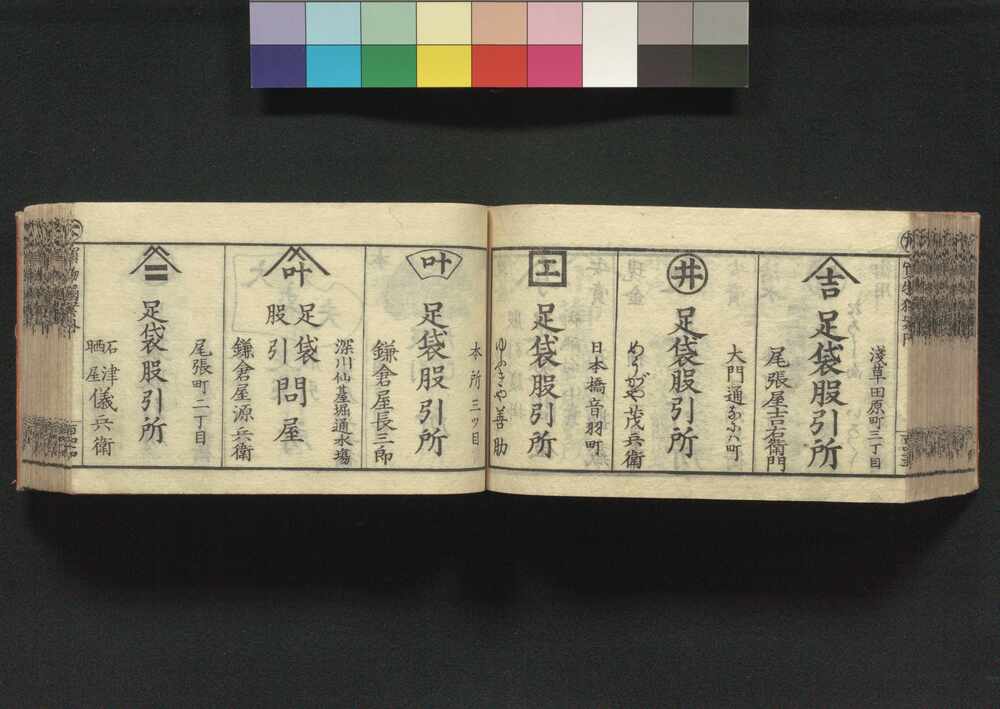 淺草田原町三丁目
吉
足袋股引所
尾張屋吉右衛門
大門通なには町
井
足袋股引所
めうがや茂兵衛
日本橋音羽町
工
足袋股引所
ゆふきや善助
本所三ッ目
叶
足袋股引所
鎌倉屋長三郎
深川仙䑓堀通永塲
叶
足袋
股引
問屋
鎌倉屋源兵衛
尾張町二丁目
二
足袋股引所
石津
晒屋
儀兵衛